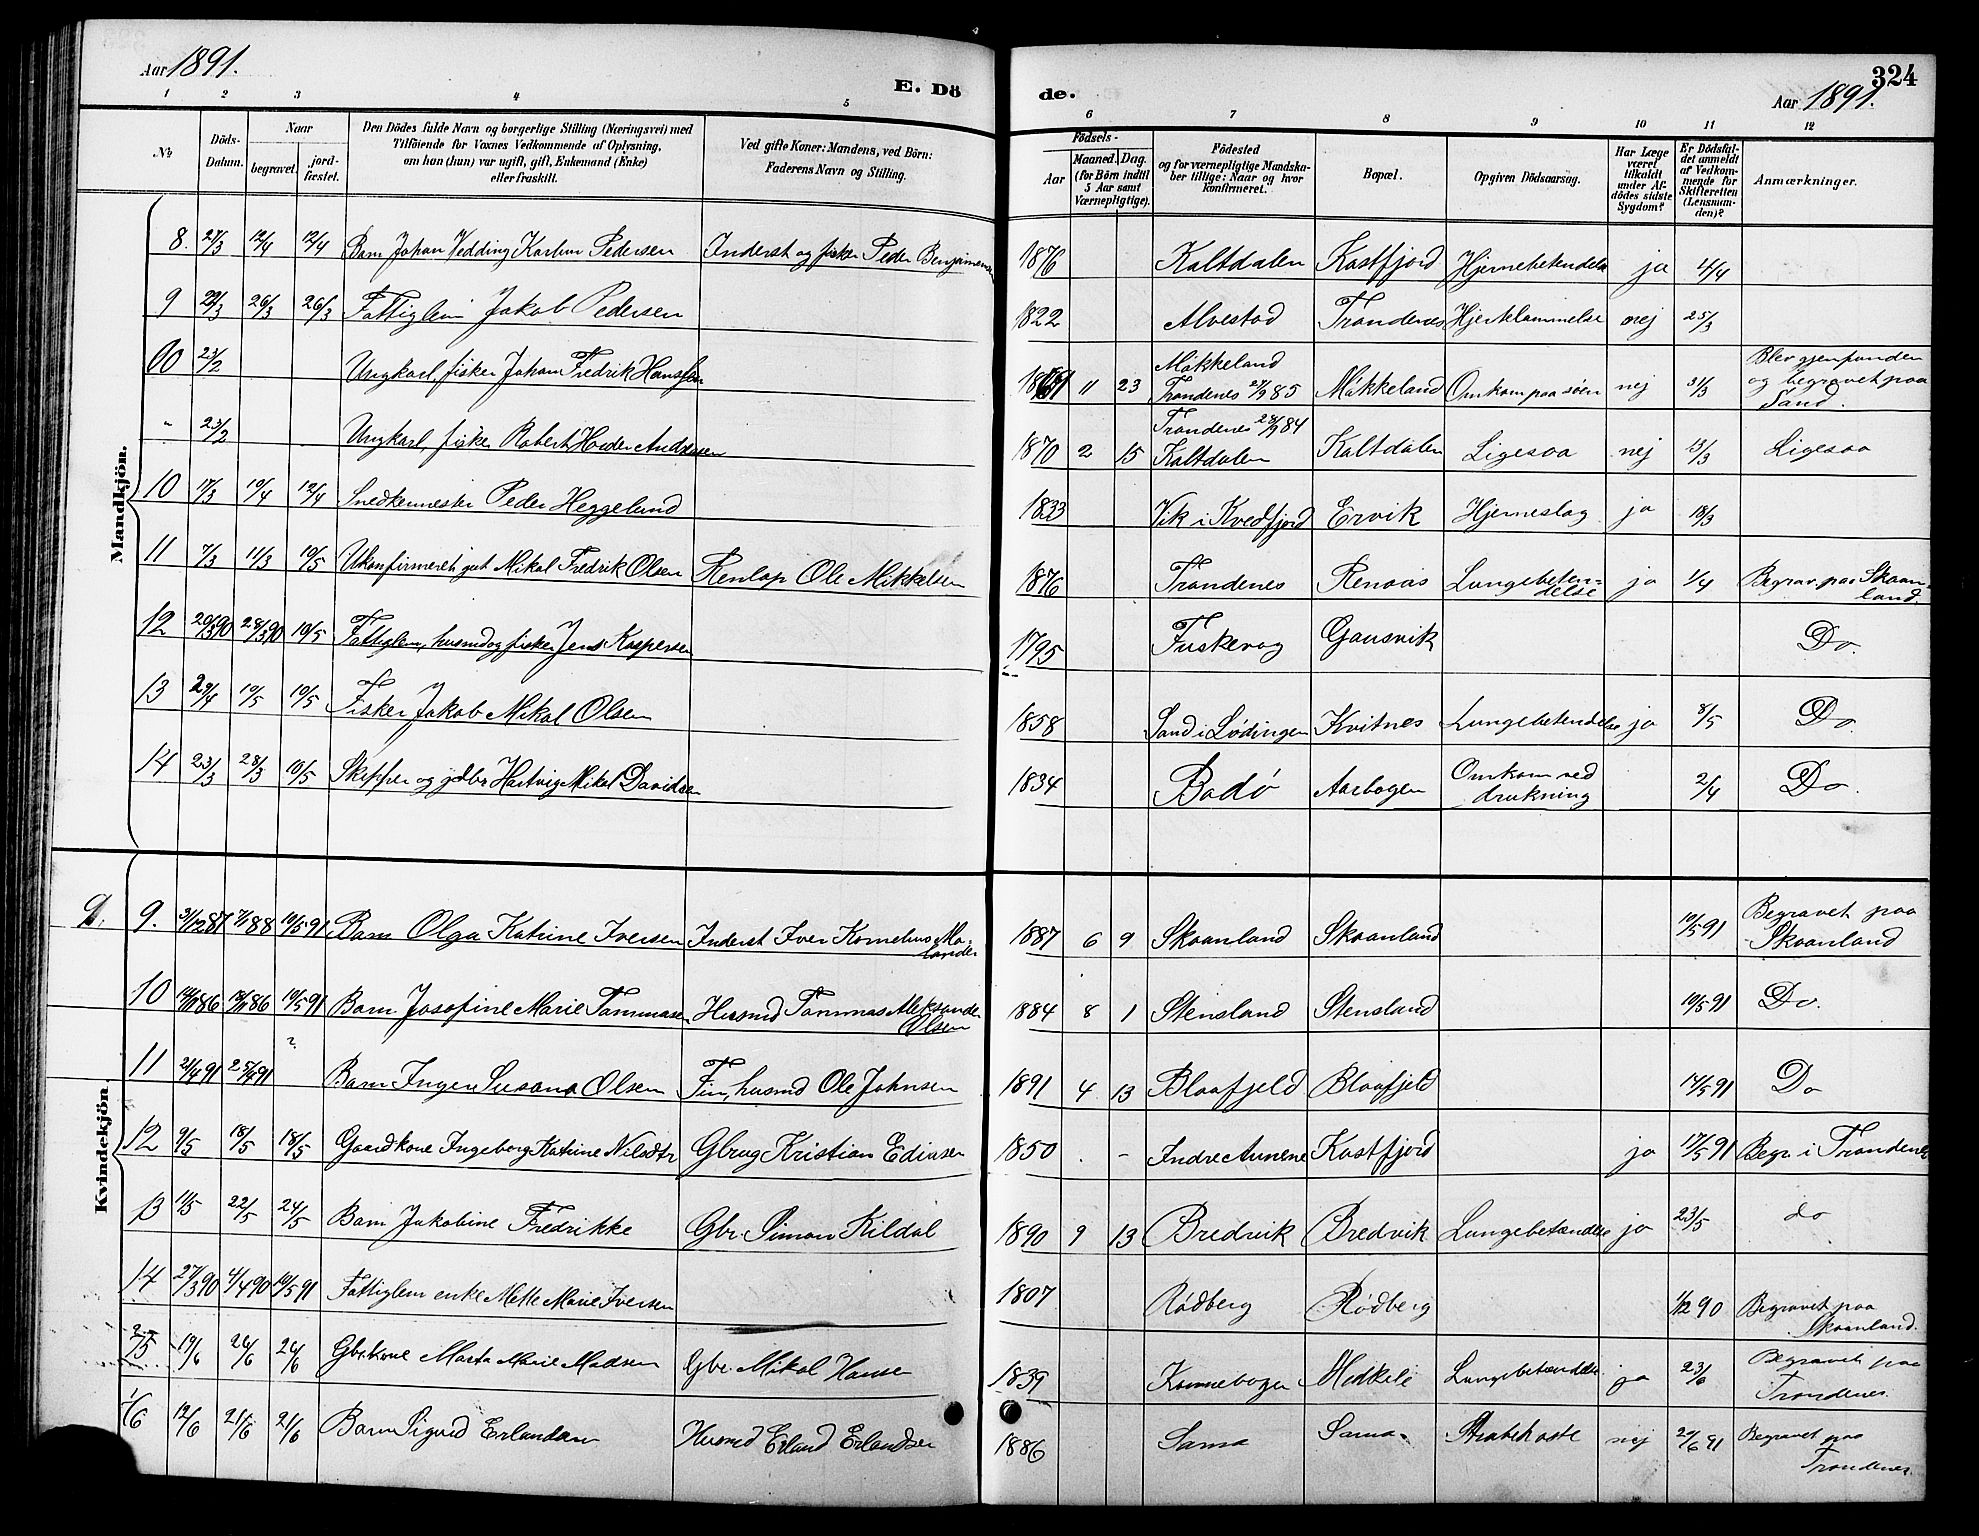 Aar 1891.
E. Dö
de.
324
Aar 1891.
1 2 3 4 5 6 7 8 9 10 11 12
No
Döds-Datum.
Naar
begravet.
jord-fæstet.
Den Dödes fulde Navn og borgerlige Stilling (Næringsvei) med
Tilföiende for Voxnes Vedkommende af Oplysning,
om han (hun) var ugift, gift, Enkemand (Enke)
eller fraskilt.
Ved gifte Koner: Mandens, ved Börn:
Faderens Navn og Stilling.
Födsels-
Aar
Maaned. Dag.
(for Börn indtil
5 Aar samt
Værnepligtige).
Födested
og for værnepligtige Mandska-
ber tillige: Naar og hvor
konfirmeret.
Bopæl.
Opgiven Dödsaarsag.
Har Læge
været
tilkaldt
under Af-
dödes sidste
Sygdom?
Er Dödsfal-
det anmeldt
af Vedkom-
mende for
Skifteretten
(Lensman-
den)?
Anmærkninger.
Mandkjön.
8. 27/3 12/4 12/4 Barn Johan Vedding Karlum Pedersen Inderst og fisker Peder Benjaminsen 1876 Kaltdalen Kastfjord Hjernebetendelse ja 4/4
9 /3 26/3 26/3 Fattiglem Jakob Pedersen 1822 Alvestad Trondenes Hjerklammelse nej 25/3
23/2 Ungkarl, fisker Johan Fredrik Hanssen 11 23 Møkkeland Trondenes 27/9 85 Møkkeland Omkom paa søen nej 31/3 Blev gjenfunden og begravet paa Sand.
" 23/2 Ungkarl, fisker Robert Andreasen 1870 2 15 Trondenes 28/9 84 Kaltdalen Kaltdalen Ligesaa nej 13/3 Ligesaa
10 17/3 10/4 12/4 Snedkermester Peder Heggelund 1833 Vik i Kvedfjord Ervik Hjerneslag ja 18/3
11 7/3 11/3 10/5 Ukonfirmeret gut Mikal Fredrik Olsen Renlap Ole Mikkelsen 1876 Trondenes Renaas Lungebeten-delse ja 1/4 Begrav. paa Skaan-land.
12 20/3 90 28/3 90 10/5 Fattiglem, husmd og fisker Jens Kaspersen 1795 Fuskevag Gausvik Do.
13 29/4 10/5 10/5 Fisker Jakob Mikal Olsen 1858 Sand i Lødingen Kvitnes Lungebetendelse ja 8/5 Do
14 23/3 28/3 10/5 Skipper og gdbr Hartvig Mikal Davidsen 1834 Bodø Aarbogen Omkom ved drukning 2/4 Do.
Kvindekjön.
9. 31/12 87 7/1 88 10/5 91 Barn Olga Katrine Iversen Inderst Iver Kornelius Mo-lander 1887 6 9 Skaanland Skaanland 10/5 91 Begravet paa Skaanland
10 14/11 86 18/11 86 10/5 91 Barn Josofine Marie Tammasen Husmd Tammas Aleksander Olsen 1884 8 1 Stensland Stensland 10/5 91 Do.
11 21/4 91 25/4 91 ? Barn Inger Susana Olsen Fin, husmd Ole Johnsen 1891 4 13 Blaafjeld Blaafjeld 14/5 91 Do
12 9/5 18/5 18/5 Gaardkone Ingeborg Katrine Nilsdtr Gbrug Kristian Ediasen 1850 . - Indre Annene Kastfjord ja 17/5 91 Begr i Trondenes
13 11/5 22/5 24/5 Barn Jakobine Fredrikke Gbr. Simon Kildal 1890 9 13 Bredvik Bredvik Lungebetændelse ja 23/5 do
14 27/3 90 4/4 90 10/5 91 Fattiglem enke Mette Marie Iversen 1807 Rødberg Rødberg 1/12 90 Begravet paa Skaanland.
15 19/6 26/6 26/6 Gbrkone Marta Marie Madsen Gbr. Mikal Hansen 1839 Kannebogen Medkile Lungebetændelse ja 23/6 Begravet paa Trondenes.
16 12/6 21/6 21/6 Barn Sigrid Erlandsen Husmd Erland Erlandsen 1886 Sama Sama Strubehoste nej 20/6 91 Begravet paa Trondenes.